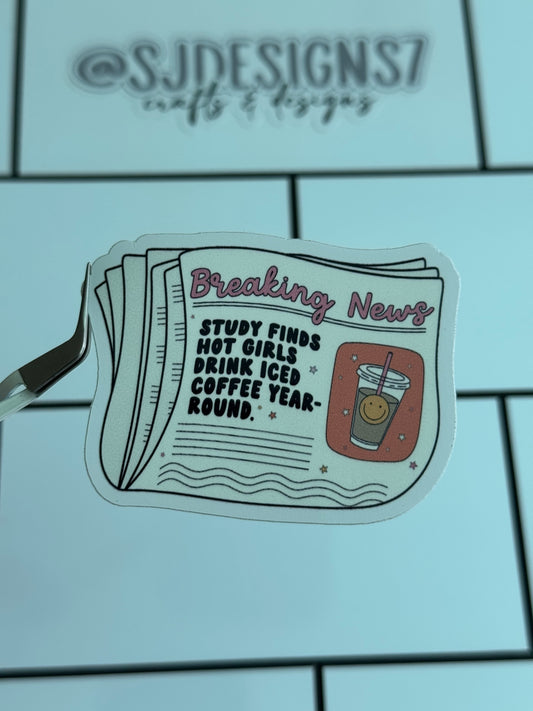 @SJDESIGNS7
crafts & designs
Breaking News
STUDY FINDS
HOT GIRLS
DRINK ICED
COFFEE YEAR-
ROUND.